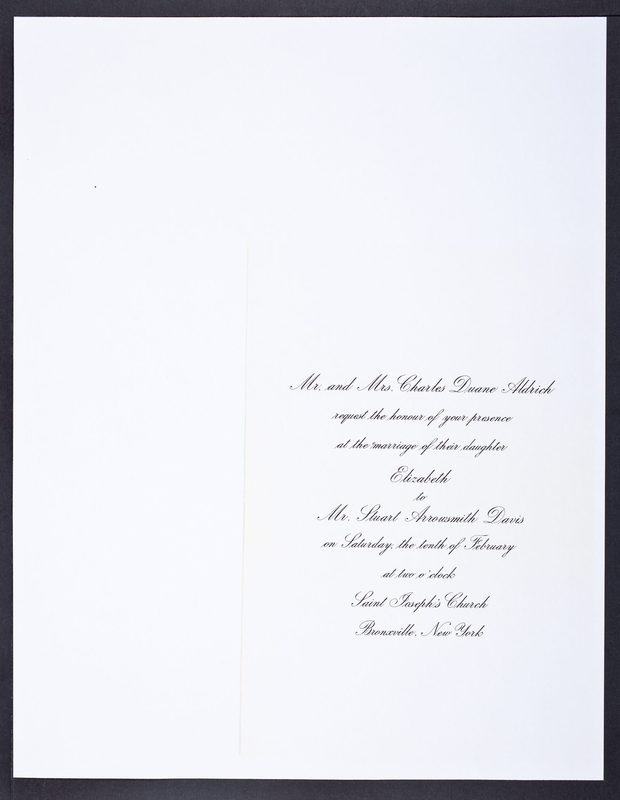 Mr. and Mrs. Charles Duane Aldrich
request the honour of your presence
at the marriage of their daughter
Elizabeth
to
Mr. Stuart Arrowsmith Davis
on Saturday, the tenth of February
at two o'clock
Saint Joseph's Church
Bronxville, New York